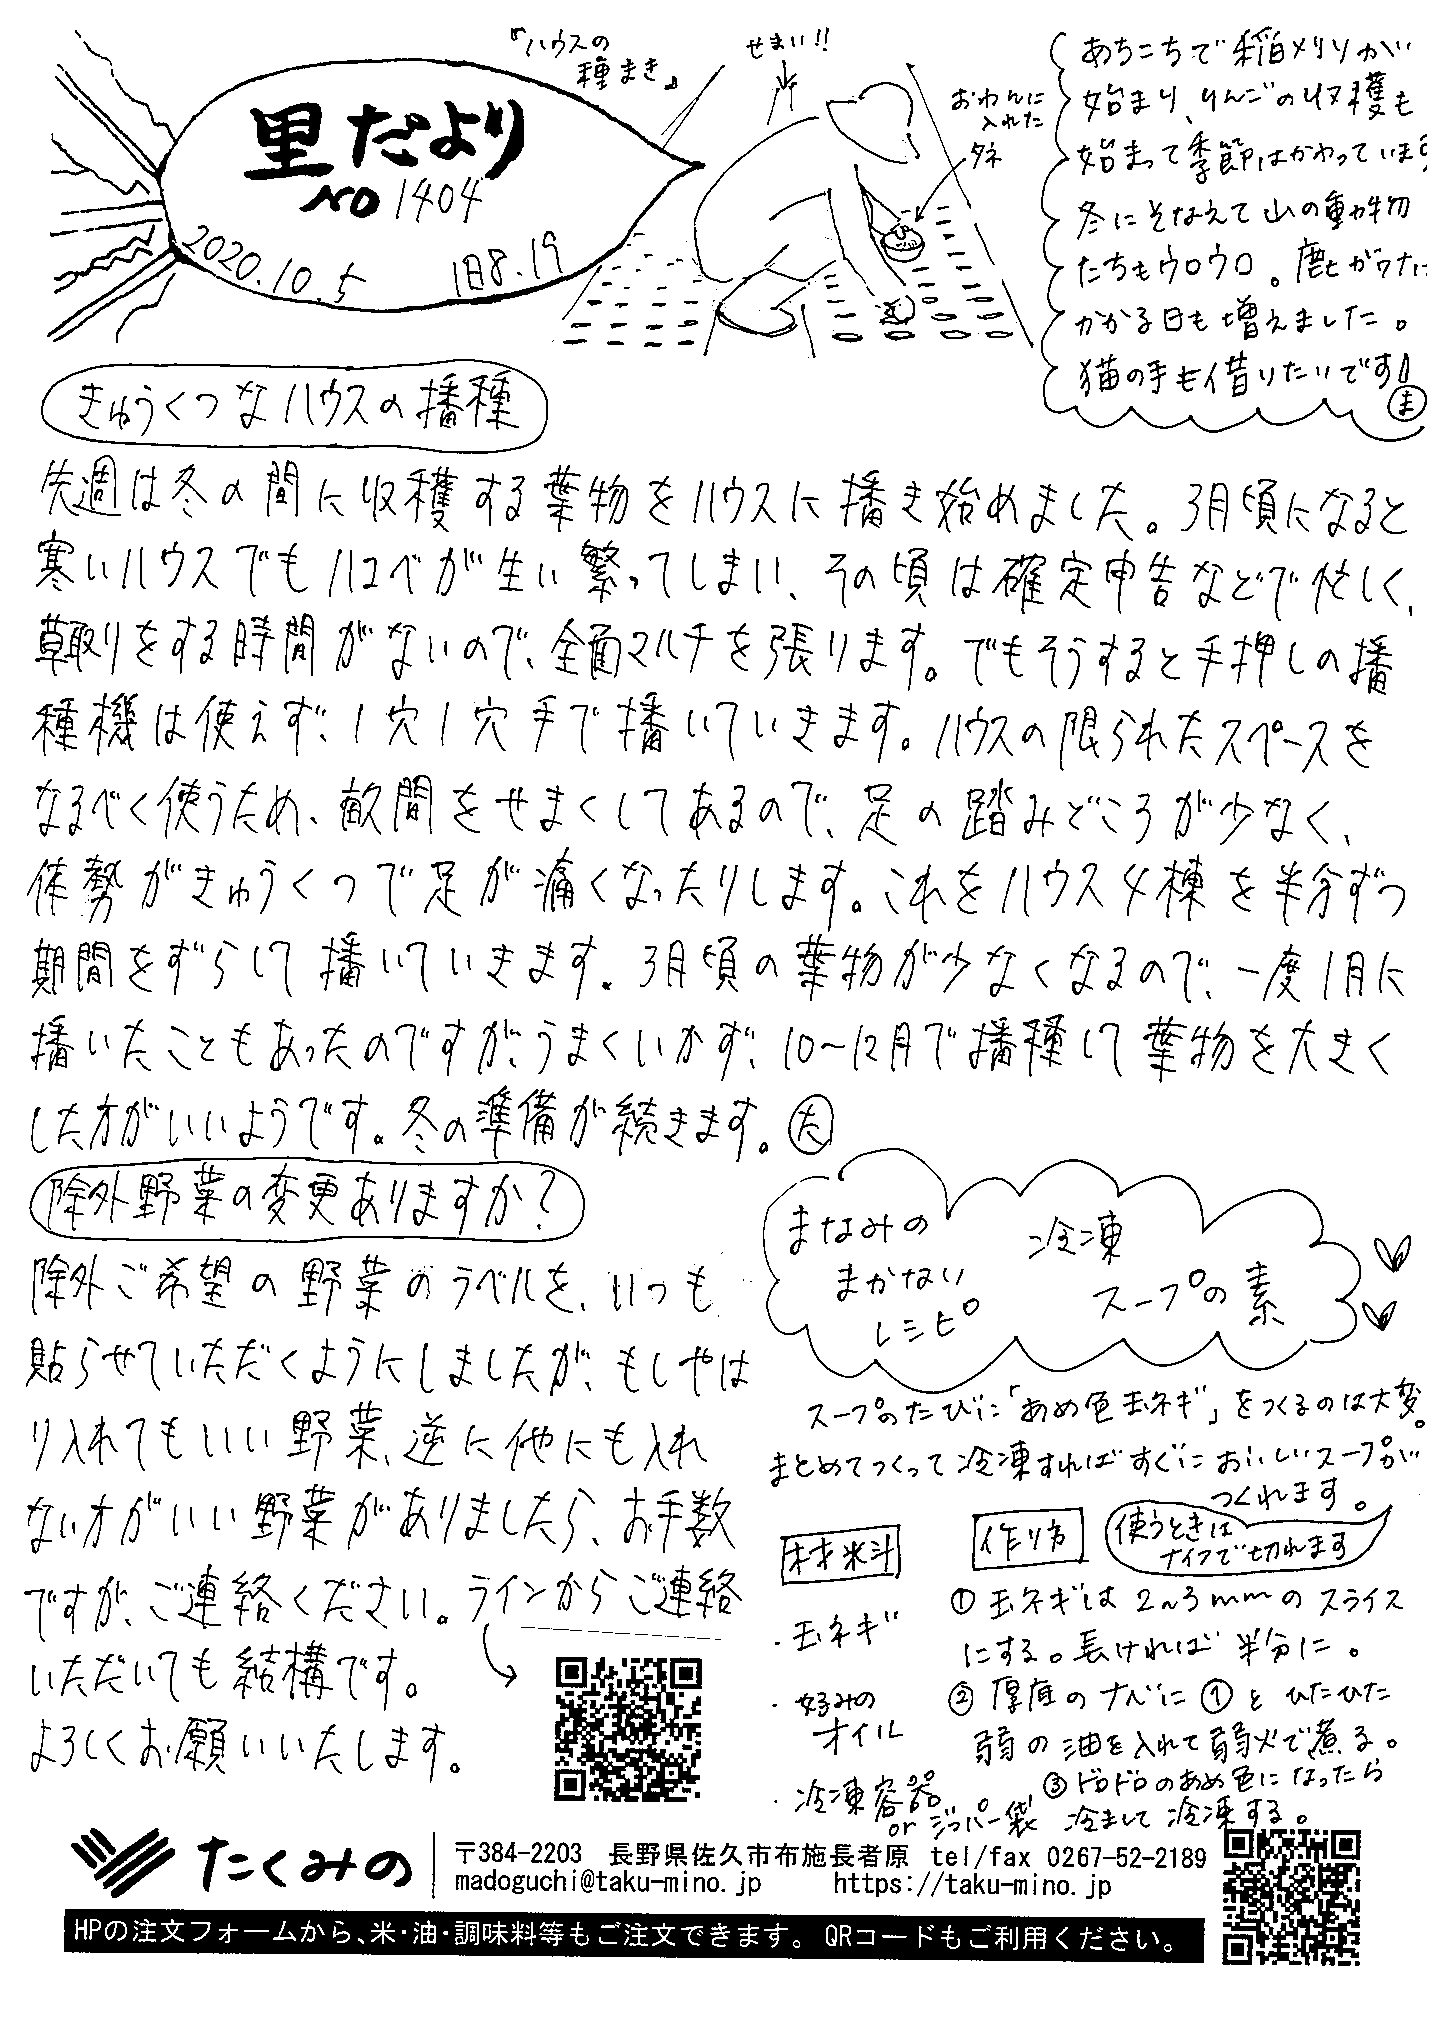 里だより
NO 1404
2020.10.5 旧8.19
『ハウスの
種まき』
せまい!!
おわんに
入れた
タネ
あちこちで稲刈りが
始まり、りんごの収穫も
始まって季節はかわっています
冬にそなえて山の動物
たちもウロウロ。鹿がワナに
かかる日も増えました。
猫の手も借りたいです!
ま
きゅうくつなハウスの播種
先週は冬の間に収穫する葉物をハウスに播き始めました。3月頃になると
寒いハウスでもハコベが生い繁ってしまい、その頃は確定申告などで忙しく、
草取りをする時間がないので、全面マルチを張ります。でもそうすると手押しの播
種機は使えず、1穴1穴手で播いていきます。ハウスの限られたスペースを
なるべく使うため、畝間をせまくしてあるので、足の踏みどころが少なく、
体勢がきゅうくつで足が痛くなったりします。これをハウス4棟を半分ずつ
期間をずらして播いていきます。3月頃の葉物が少なくなるので、一度1月に
播いたこともあったのですが、うまくいかず、10〜12月で播種して葉物を大きく
した方がいいようです。冬の準備が続きます。た
除外野菜の変更ありますか?
除外ご希望の野菜のラベルを、いつも
貼らせていただくようにしましたが、もしやは
り入れてもいい野菜、逆に他にも入れ
ない方がいい野菜がありましたら、お手数
ですが、ご連絡ください。ラインからご連絡
いただいても結構です。
よろしくお願いいたします。
まなみの
まかない
レシピ
冷凍
スープの素
スープのたびに「あめ色玉ネギ」をつくるのは大変。
まとめてつくって冷凍すればすぐにおいしいスープが
つくれます。
材料
・玉ネギ
・好みの
オイル
・冷凍容器
or ジッパー袋
作り方
使うときは
ナイフで切れます
① 玉ネギは2〜3mmのスライス
にする。長ければ半分に。
② 厚底のナベに①とひたひた
弱の油を入れて弱火で煮る。
③ ドロドロのあめ色になったら
冷まして冷凍する。
たくみの
〒384-2203 長野県佐久市布施長者原 tel/fax 0267-52-2189
madoguchi@taku-mino.jp https://taku-mino.jp
HPの注文フォームから、米・油・調味料等もご注文できます。 QRコードもご利用ください。